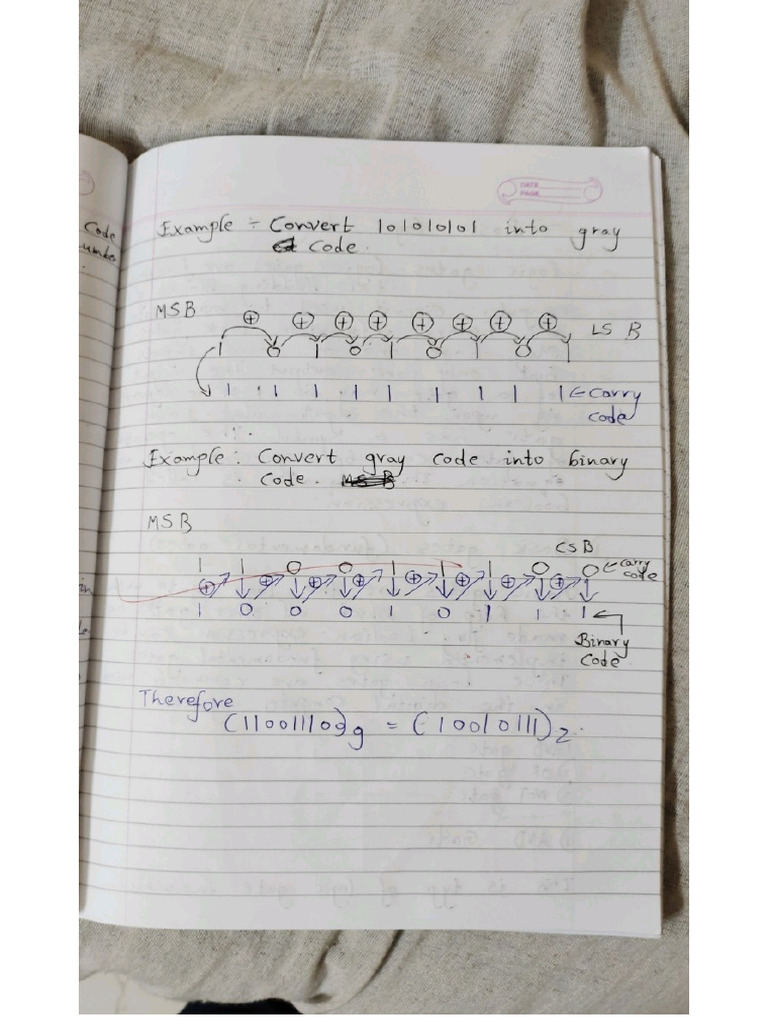 DATE
PAGE
Code
Example ÷ Convert 10101010 1 into gray
Code.
MSB
⊕ ⊕ ⊕ ⊕ ⊕ ⊕ ⊕ ⊕
LSB
1 0 1 0 1 0 1 0 1
1 1 1 1 1 1 1 1 1 ← Carry
code
Example: Convert gray code into binary
Code.
MSB
CSB
1 1 0 0 1 1 1 0 0 ← Carry
code
⊕ ⊕ ⊕ ⊕ ⊕ ⊕ ⊕ ⊕
1 0 0 0 1 0 1 1 1 ←
Binary
Code.
Therefore
(110011100)g = (10010111)2.